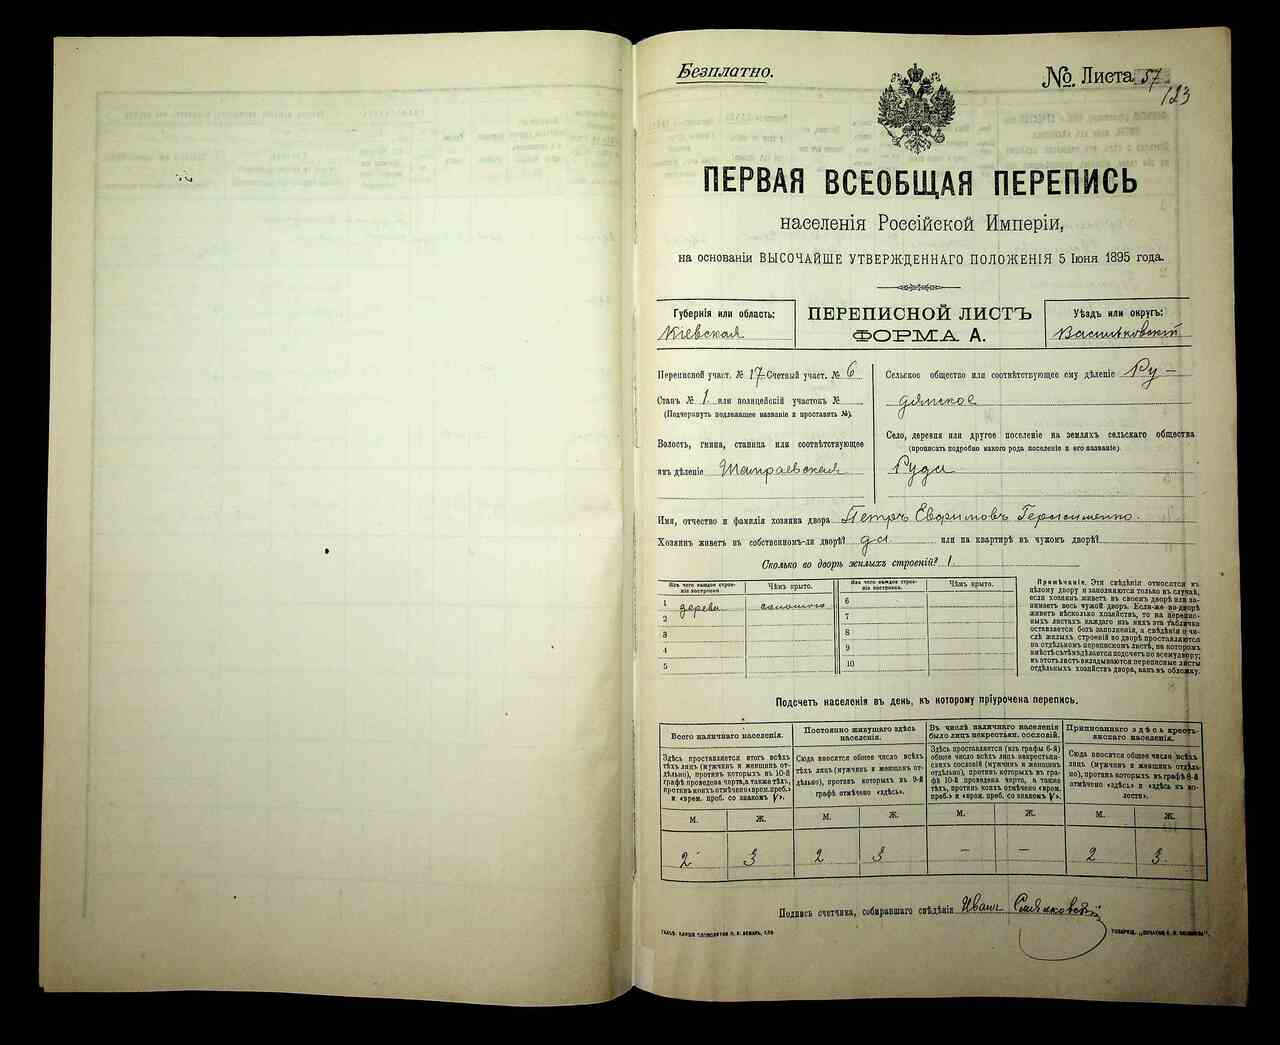 Безплатно.
№ Листа 57
123
ПЕРВАЯ ВСЕОБЩАЯ ПЕРЕПИСЬ
населенія Россійской Имперіи,
на основаніи ВЫСОЧАЙШЕ УТВЕРЖДЕННАГО ПОЛОЖЕНІЯ 5 Іюня 1895 года.
Губернія или область:
Кіевская
ПЕРЕПИСНОЙ ЛИСТЪ
ФОРМА А.
Уѣздъ или округъ:
Васильковскій
Переписной участ. № 17 Счетный участ. № 6
Станъ № 1. или полицейскій участокъ №
(Подчеркнуть подлежащее названіе и проставить №).
Волость, гмина, станица или соотвѣтствующее
имъ дѣленіе
Сельское общество или соотвѣтствующее ему дѣленіе Ру-
дянское
Село, деревня или другое поселеніе на земляхъ сельскаго общества
(прописать подробно какого рода поселеніе и его названіе).
Руда
Имя, отчество и фамилія хозяина двора Петръ Евфимовъ Герасименко.
Хозяинъ живетъ въ собственномъ-ли дворѣ? да или на квартирѣ въ чужомъ дворѣ?
Сколько во дворѣ жилыхъ строеній? 1.
Изъ чего каждое строе-
ніе построено
Чѣмъ крыто.
Изъ чего каждое строе-
ніе построено.
Чѣмъ крыто.
1 дерева соломою
2
3
4
5
6
7
8
9
10
Примѣчаніе. Эти свѣдѣнія относятся къ
цѣлому двору и заполняются только въ случаѣ,
если хозяинъ живетъ въ своемъ дворѣ или за-
нимаетъ весь чужой дворъ. Если-же во дворѣ
живетъ нѣсколько хозяйствъ, то на перепис-
ныхъ листахъ каждаго изъ нихъ эта табличка
оставляется безъ заполненія, а свѣдѣнія о чи-
слѣ жилыхъ строеній во дворѣ проставляются
на отдѣльномъ переписномъ листѣ, на которомъ
вмѣстѣ съ тѣмъ дѣлается подсчетъ по всему двору;
въ этотъ листъ вкладываются переписные листы
отдѣльныхъ хозяйствъ двора, какъ въ обложку.
Подсчетъ населенія въ день, къ которому пріурочена перепись.
Всего наличнаго населенія.
Здѣсь проставляется итогъ всѣхъ
тѣхъ лицъ (мужчинъ и женщинъ от-
дѣльно), противъ которыхъ въ 10-й
графѣ проведена черта, а также тѣхъ,
противъ коихъ отмѣчено «врем. преб.»
и «врем. преб. со знакомъ V».
Постоянно живущаго здѣсь
населенія.
Сюда вносится общее число всѣхъ
тѣхъ лицъ (мужчинъ и женщинъ от-
дѣльно), противъ которыхъ въ 9-й
графѣ отмѣчено «здѣсь».
Въ числѣ наличнаго населенія
было лицъ некрестьян. сословій.
Здѣсь проставляется (изъ графы 6-й)
общее число всѣхъ лицъ некрестьян-
скихъ сословій (мужчинъ и женщинъ
отдѣльно), противъ которыхъ въ гра-
фѣ 10-й проведена черта, а также
тѣхъ, противъ коихъ отмѣчено «врем.
преб.» и «врем. преб. со знакомъ V».
Приписаннаго здѣсь кресть-
янскаго населенія.
Сюда вносится общее число всѣхъ
лицъ (мужчинъ и женщинъ отдѣль-
но), противъ которыхъ въ графѣ 8-й
отмѣчено «здѣсь» и «здѣсь въ во-
лости».
М. Ж. М. Ж. М. Ж. М. Ж.
2 3 2 3 — — 2 3.
Подпись счетчика, собиравшаго свѣдѣнія Иванъ